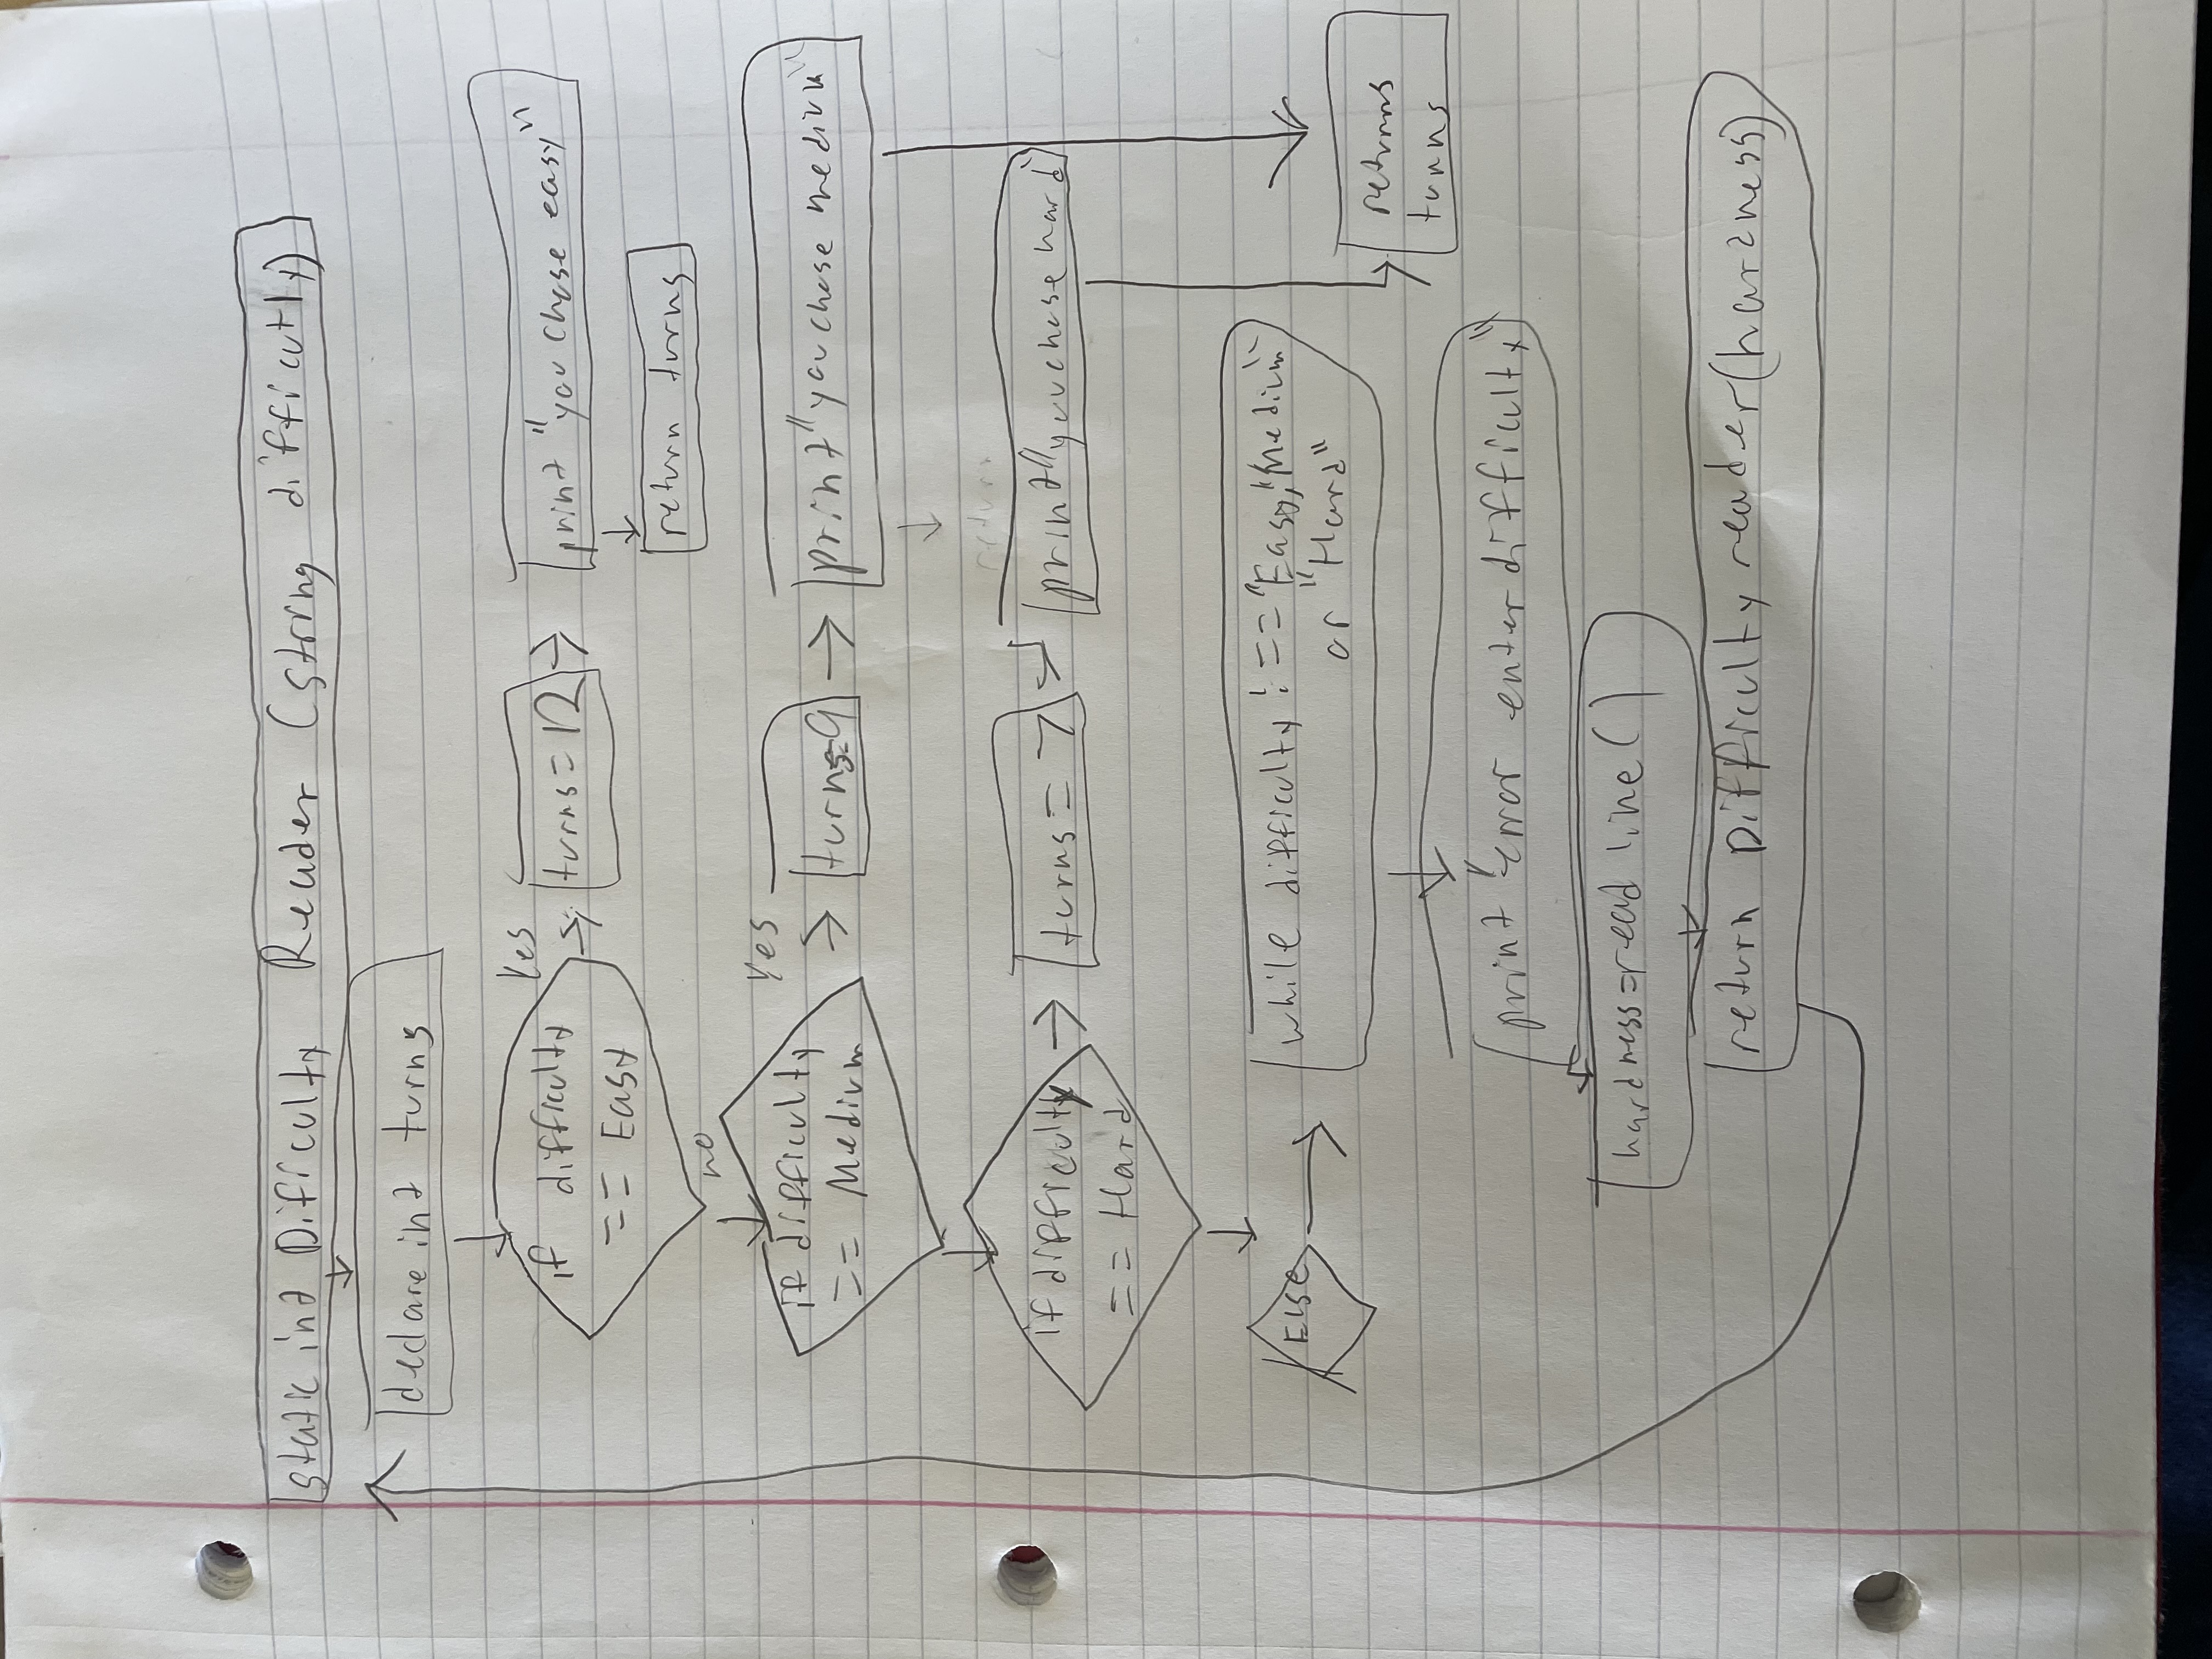 static int Dificulty Reader (string difficutly)
declare int turns
if difficulty
== Easy
Yes
turns = 12
print "you chose easy"
return turns
no
if difficulty
== Medium
Yes
turns=9
print "you chose medium"
return
if difficulty
== Hard
turns = 7
print "you chose hard"
Else
while difficulty !== "Easy," "Medium"
or "Hard"
returns
turns
print "error enter difficulty"
hardness=read line()
return Difficulty reader(hardness)